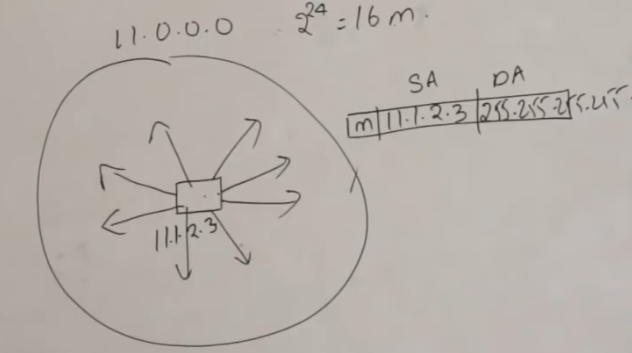 11.0.0.0 2^24 = 16 m.
SA DA
m 11.1.2.3 255.255.255.255
11.1.2.3